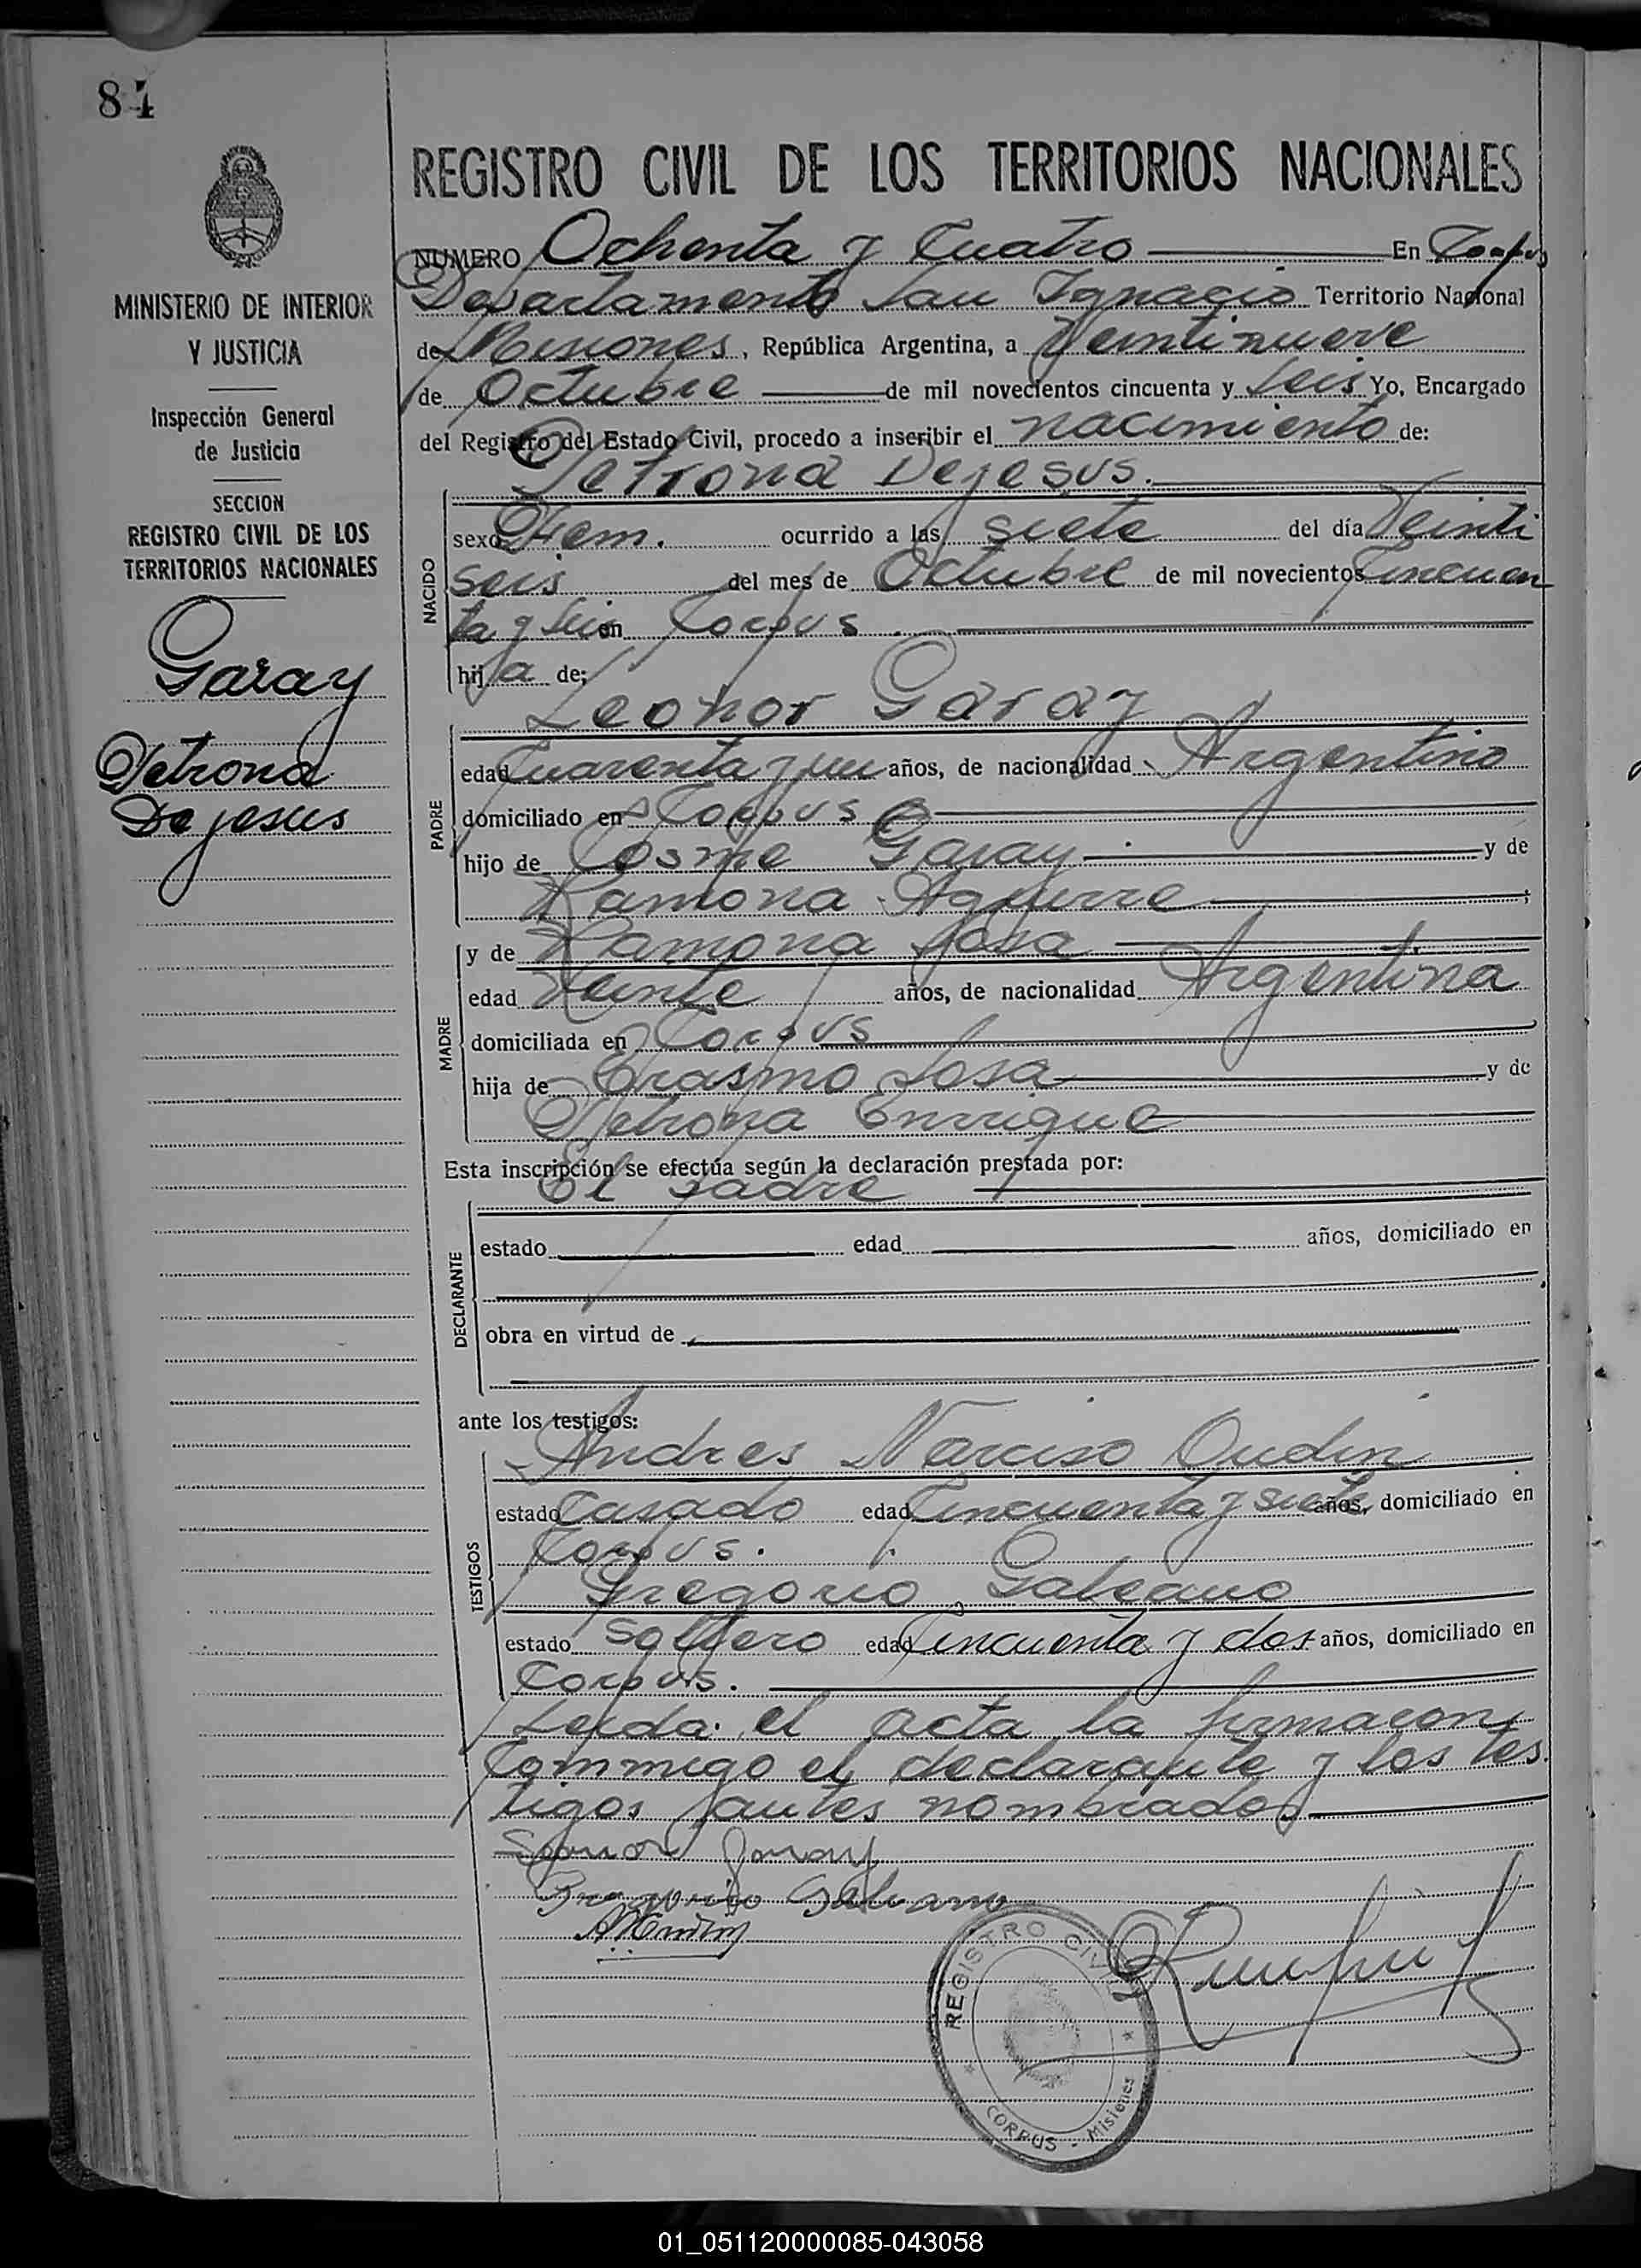 84
MINISTERIO DE INTERIOR
Y JUSTICIA
Inspección General
de Justicia
SECCION
REGISTRO CIVIL DE LOS
TERRITORIOS NACIONALES
Garay
Petrona
De jesus
REGISTRO CIVIL DE LOS TERRITORIOS NACIONALES
NUMERO Ochenta y Cuatro En Corpus
Departamento San Ignacio Territorio Nacional
de Misiones, República Argentina, a Veintinueve
de Octubre de mil novecientos cincuenta y Seis Yo, Encargado
del Registro del Estado Civil, procedo a inscribir el nacimiento de:
Petrona Dejesus.
NACIDO
sexo Fem. ocurrido a las siete del día Veinti
seis del mes de Octubre de mil novecientos Cincuen
ta y Seis en Corpus.
hija de;
Leonor Garay
PADRE
edad Cuarenta y un años, de nacionalidad Argentino
domiciliado en Corpus
hijo de Cosme Garay y de
Ramona Aguirre
MADRE
y de Ramona Sosa
edad Veinte años, de nacionalidad Argentina
domiciliada en Corpus
hija de Erasmo Sosa y de
Petrona Enrrique
Esta inscripción se efectúa según la declaración prestada por:
El padre
DECLARANTE
estado edad años, domiciliado en
obra en virtud de
ante los testigos:
TESTIGOS
Andres Narciso Oudin
estado Casado edad Cincuenta y siete años, domiciliado en
Corpus.
Gregorio Galeano
estado Soltero edad Cincuenta y dos años, domiciliado en
Corpus.
Leida el acta la firmaron
Commigo el declarante y los tes
tigos antes nombrados
Leonor Garay
Gregorio Galeano
REGISTRO CIVIL
CORPUS - Misiones
01_051120000085-043058